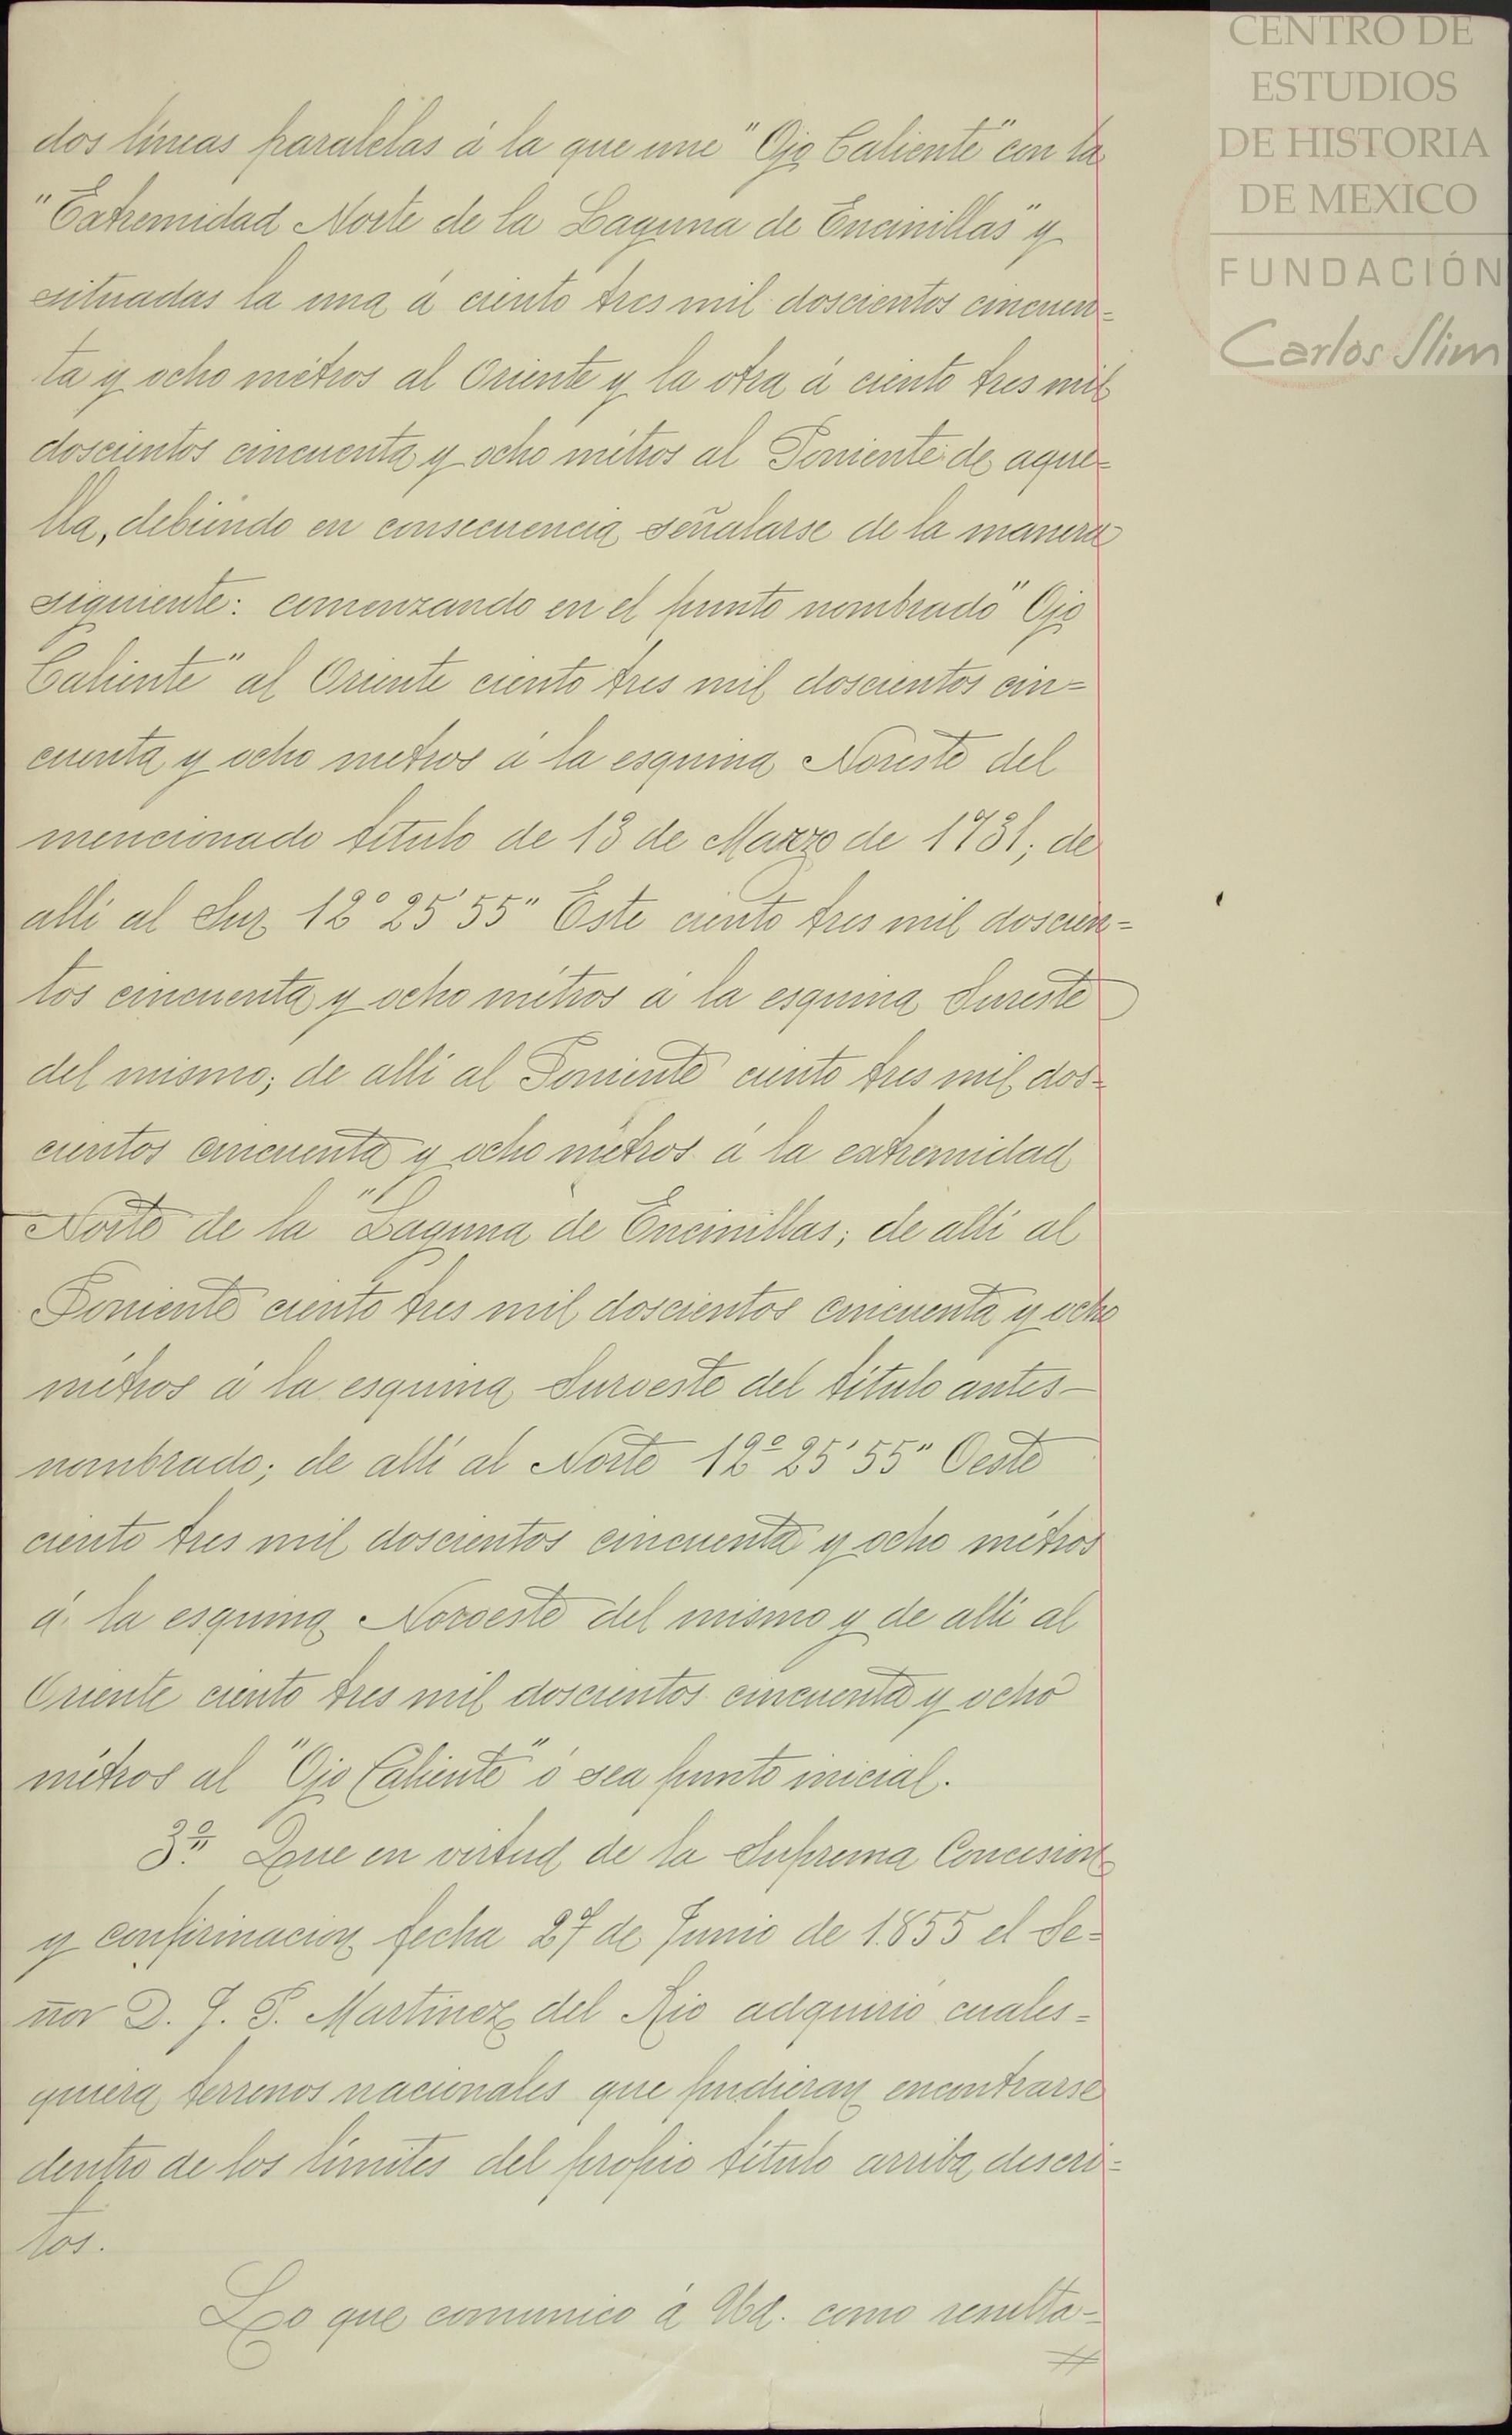 CENTRO DE
ESTUDIOS
DE HISTORIA
DE MEXICO
FUNDACIÓN
Carlos Slim
dos líneas paralelas á la que une "Ojo Caliente" con la
"Extremidad Norte de la Laguna de Encinillas" y
situadas la una á ciento tres mil doscientos cincuen-
ta y ocho métros al Oriente y la otra á ciento tres mil
doscientos cincuenta y ocho métros al Poniente de aque-
lla, debiendo en consecuencia señalarse de la manera
siguiente: comenzando en el punto nombrado "Ojo
Caliente" al Oriente ciento tres mil doscientos cin=
cuenta y ocho metros á la esquina Noreste del
mencionado título de 13 de Marzo de 1731; de
allí al Sur 12° 25' 55" Este ciento tres mil doscien=
tos cincuenta y ocho métros á la esquina Sureste
del mismo; de allí al Poniente ciento tres mil dos-
cientos cincuenta y ocho métros á la extremidad
Norte de la "Laguna de Encinillas; de allí al
Poniente ciento tres mil doscientos cincuenta y ocho
métros á la esquina Suroeste del título antes-
nombrado; de allí al Norte 12° 25' 55" Oeste
ciento tres mil doscientos cincuenta y ocho métros
á la esquina Noroeste del mismo y de allí al
Oriente ciento tres mil doscientos cincuenta y ocho
métros al "Ojo Caliente" ó sea punto inicial.
3º. Que en virtud de la Suprema Concesion
y confirmacion fecha 27 de Junio de 1855 el Se=
ñor D. J. P. Martinez del Rio adquirió cuales=
quiera terrenos nacionales que pudieran encontrarse
dentro de los límites del propio título arriba descri=
tos.
Lo que comunico á Ud. como resulta-